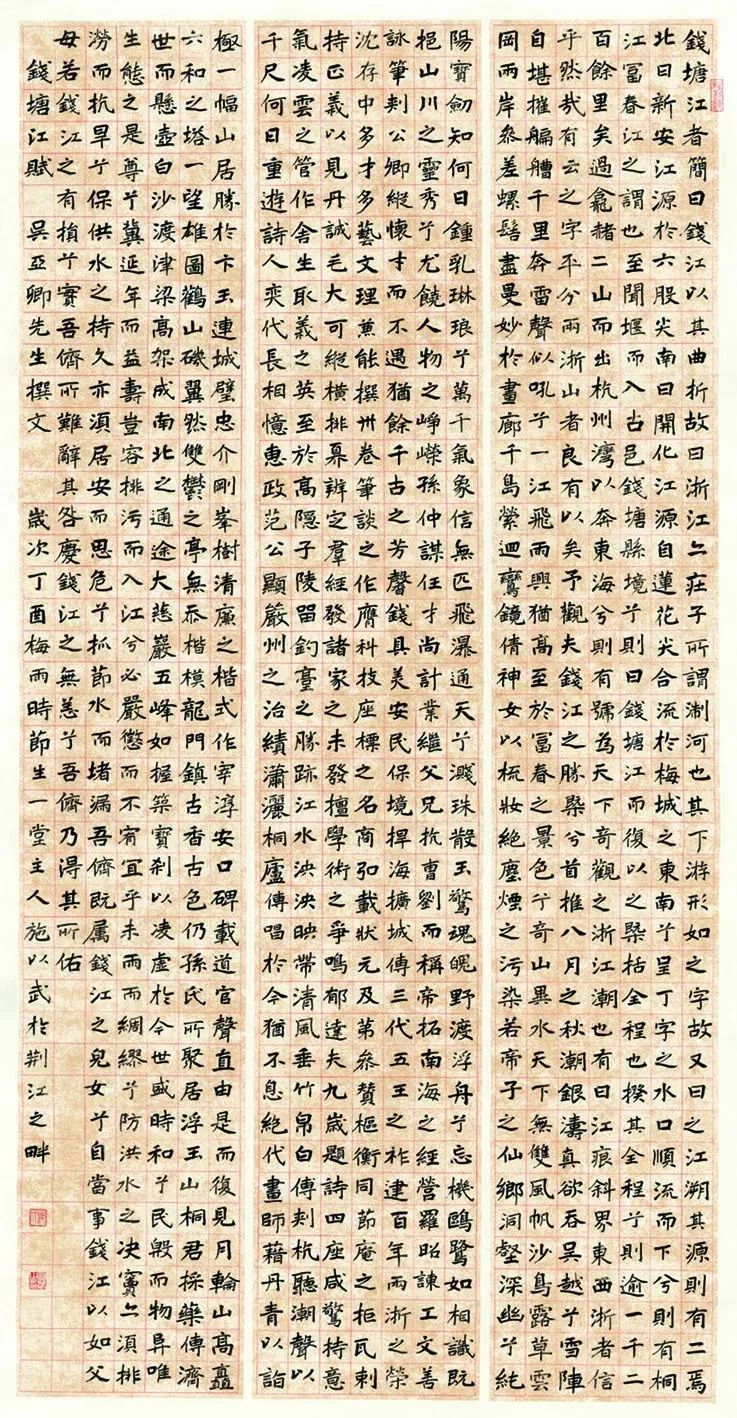 錢塘江者簡曰錢江以其曲折故曰浙江亦莊子所謂淛河也其下游形如之字故又曰之江溯其源則有二焉
北曰新安江源於六股尖南曰開化江源自蓮花尖合流於梅城之東南兮呈丁字之水口順流而下兮則有桐
江富春江之謂也至聞堰而入古邑錢塘縣境兮則曰錢塘江而復以之槩括全程也揆其全程兮則逾一千二
百餘里矣過龕赭二山而出杭州灣以奔東海兮則有號為天下奇觀之浙江潮也有曰江痕斜界東西浙者信
乎然哉有云之字平分兩浙山者良有以矣予觀夫錢江之勝槩兮首推八月之秋潮銀濤真欲吞吳越兮雪陣
自堪摧艑艚千里奔雷聲似吼兮一江飛雨興猶高至於富春之景色兮奇山異水天下無雙風帆沙鳥露草雲
岡兩岸參差螺髻盡曼妙於畫廊千島縈迴鸞鏡倩神女以梳妝絕塵煙之污染若帝子之仙鄉洞壑深幽兮純
陽寶劍知何日鍾乳琳琅兮萬千氣象信無匹飛瀑通天兮濺珠散玉驚魂魄野渡浮舟兮忘機鷗鷺如相識既
挹山川之靈秀兮尤饒人物之崢嶸孫仲謀任才尚計業繼父兄抗曹劉而稱帝拓南海之經營羅昭諫工文善
詠筆刺公卿縱懷才而不遇猶餘千古之芳馨錢具美安民保境捍海擴城傳三代五王之祚建百年兩浙之榮
沈存中多才多藝文理兼能撰卅卷筆談之作膺科技座標之名商弘載狀元及第參贊樞衡同節庵之拒瓦剌
持正義以見丹誠毛大可縱橫排奡辨定羣經發諸家之未發檀學術之爭鳴郁達夫九歲題詩四座咸驚持意
氣凌雲之管作舍生取義之英至於高隱子陵留釣臺之勝跡江水泱泱映帶清風垂竹帛白傅刺杭聽潮聲以
千尺何日重遊詩人奕代長相憶惠政范公顯嚴州之治績瀟灑桐廬傳唱於今猶不息絕代畫師藉丹青以詣
極一幅山居勝於卞玉連城璧忠介剛峯樹清廉之楷式作宰淳安口碑載道官聲直由是而復見月輪山高矗
六和之塔一望雄圖鸛山磯翼然雙鬱之亭無忝楷模龍門鎮古香古色仍孫氏所聚居浮玉山桐君採藥傳濟
世而懸壺白沙渡津梁高架成南北之通途大慈巖五峰如握築寶剎以凌虛於今世盛時和兮民殷而物阜唯
生態之是尊兮冀延年而益壽豈容排污而入江兮必嚴懲而不宥宜乎未雨而綢繆兮防洪水之決竇亦須排
澇而抗旱兮保供水之持久亦須居安而思危兮抓節水而堵漏吾儕既屬錢江之兒女兮自當事錢江以如父
母若錢江之有損兮實吾儕所難辭其咎慶錢江之無恙兮吾儕乃得其所佑
錢塘江賦 吳亞卿先生撰文 歲次丁酉梅雨時節生一堂主人施以武於荊江之畔